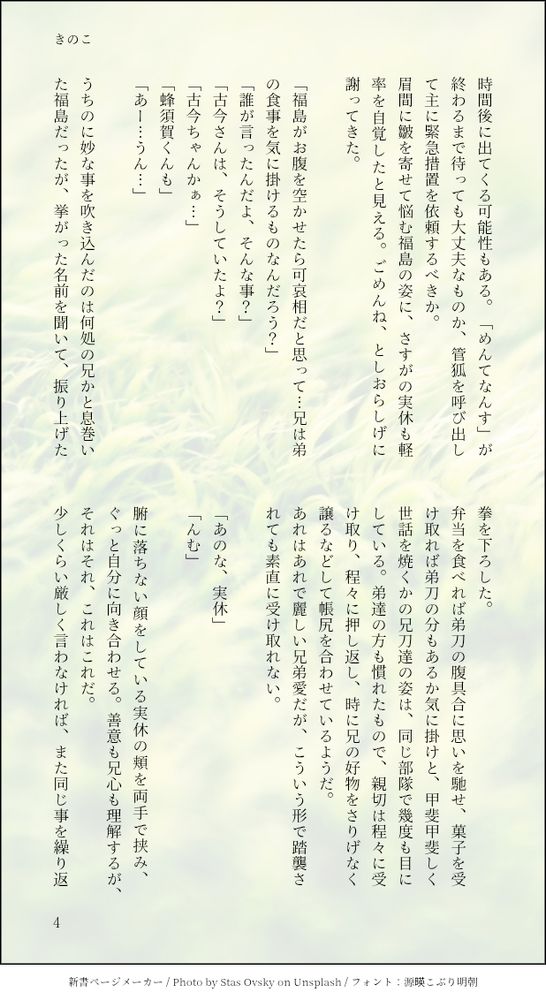 きのこ
時間後に出てくる可能性もある。「めんてなんす」が
終わるまで待っても大丈夫なものか、管狐を呼び出し
て主に緊急措置を依頼するべきか。
眉間に皺を寄せて悩む福島の姿に、さすがの実休も軽
率を自覚したと見える。ごめんね、としおらしげに
謝ってきた。
「福島がお腹を空かせたら可哀相だと思って…兄は弟
の食事を気に掛けるものなんだろう？」
「誰が言ったんだよ、そんな事？」
「古今さんは、そうしていたよ？」
「古今ちゃんかぁ…」
「蜂須賀くんも」
「あー…うん…」
うちのに妙な事を吹き込んだのは何処の兄かと息巻い
た福島だったが、挙がった名前を聞いて、振り上げた
拳を下ろした。
弁当を食べれば弟刀の腹具合に思いを馳せ、菓子を受
け取れば弟刀の分もあるか気に掛けと、甲斐甲斐しく
世話を焼くかの兄刀達の姿は、同じ部隊で幾度も目に
している。弟達の方も慣れたもので、親切は程々に受
け取り、程々に押し返し、時に兄の好物をさりげなく
譲るなどして帳尻を合わせているようだ。
あれはあれで麗しい兄弟愛だが、こういう形で踏襲さ
れても素直に受け取れない。
「あのな、実休」
「んむ」
腑に落ちない顔をしている実休の頬を両手で挟み、
ぐっと自分に向き合わせる。善意も兄心も理解するが、
それはそれ、これはこれだ。
少しくらい厳しく言わなければ、また同じ事を繰り返
4
新書ページメーカー / Photo by Stas Ovsky on Unsplash / フォント：源暎こぶり明朝